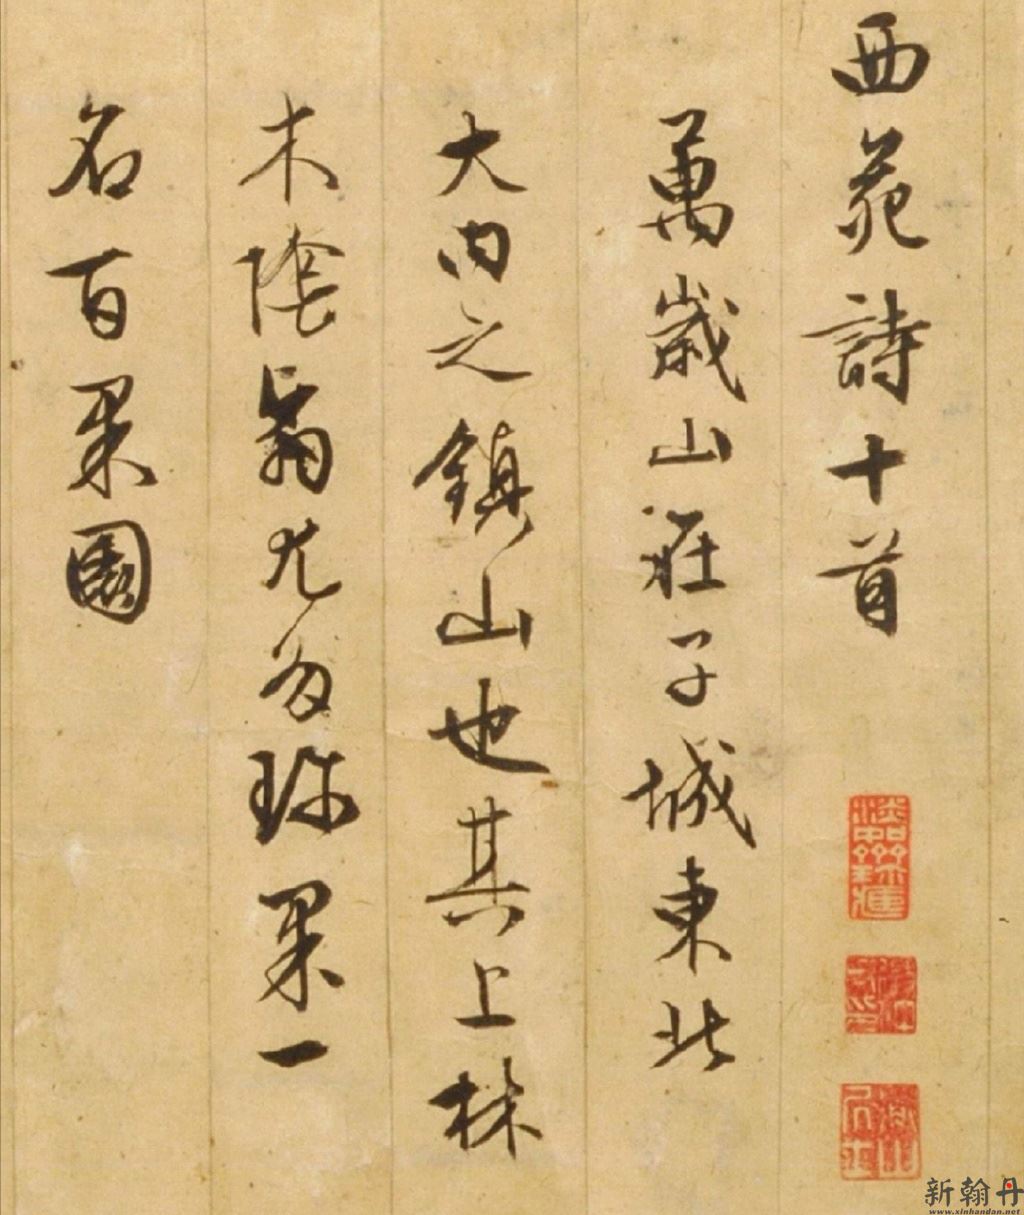 西苑詩十首
萬歲山在子城東北
大內之鎮山也其上林
木陰翳尤多珍果一
名百果園
新翰丹
www.xinhandan.net